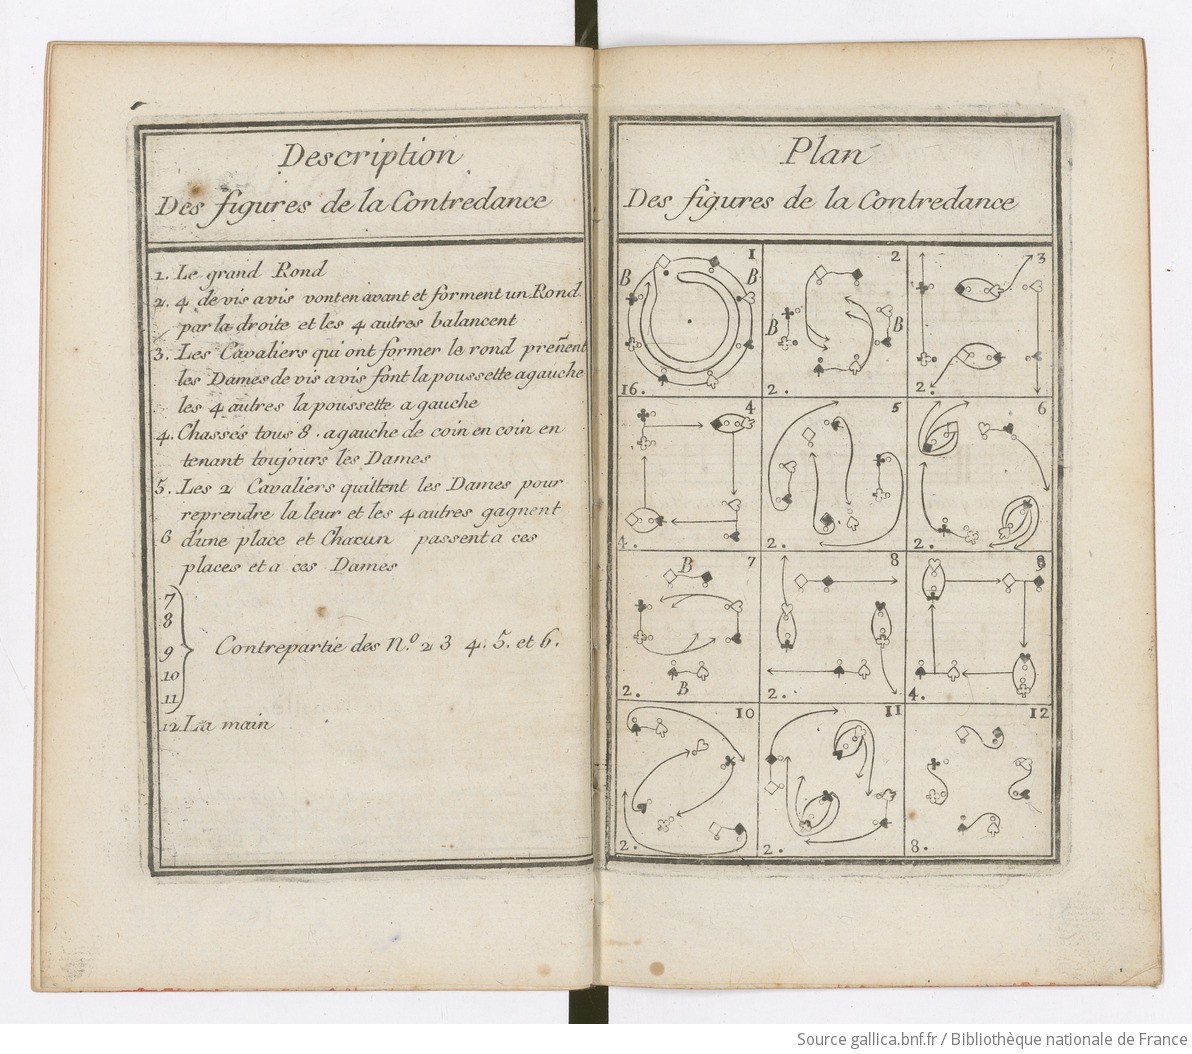 Description
Des figures de la Contredance
1. Le grand Rond
2. 4 de vis avis vont en avant et forment un Rond
par la droite et les 4 autres balancent
3. Les Cavaliers qui ont former le rond preñent
les Dames de vis avis font la poussette a gauche
les 4 autres la poussette a gauche
4. Chassés tous 8. a gauche de coin en coin en
tenant toujours les Dames
5. Les 2 Cavaliers quittent les Dames pour
reprendre la leur et les 4 autres gagnent
6 d'une place et Chacun passent a ces
places et a ces Dames
7
8
9 Contrepartie des N.º 2 3 4. 5. et 6.
10
11
12 La main
Plan
Des figures de la Contredance
1 2 3
B B B B
16. 2. 2.
4 5 6
4. 2. 2.
7 8 9
B
B
2. 2. 4.
10 11 12
2. 2. 8.
Source gallica.bnf.fr / Bibliothèque nationale de France